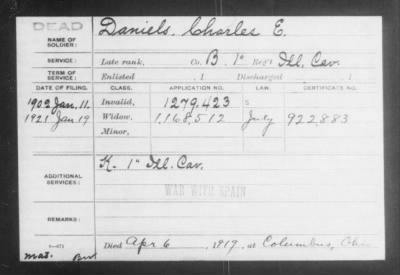 DEAD
Daniels, Charles E.
NAME OF
SOLDIER:
SERVICE:
Late rank, Co. B. 1st Reg't Ill. Cav.
TERM OF
SERVICE:
Enlisted , 1 Discharged , 1
DATE OF FILING. CLASS. APPLICATION NO. LAW. CERTIFICATE NO.
1902 Jan. 11. Invalid, 1279,423 S
1921 Jan 19 Widow, 1,168,512 July 922,883
Minor,
K. 1st Ill. Cav.
ADDITIONAL
SERVICES:
WAR WITH SPAIN
REMARKS:
Died Apr 6, 1919, at Columbus, Ohio